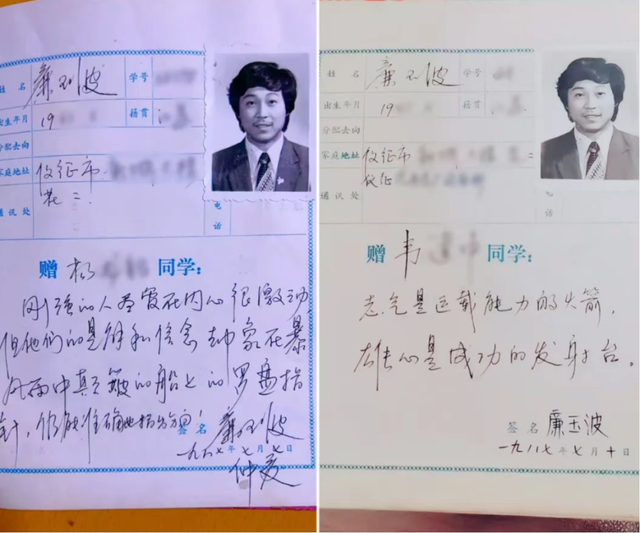 姓名 廉玉波 学号
出生年月 19 籍贯
分配去向
家庭地址 仪征市
花二
通讯处 电话
赠 杨 同学:
刚强的人尽管在内心很激动
但他们的见解和信念却象在暴
风雨中颠簸的船上的罗盘指
针,仍能准确地指出方向!
签名 廉玉波
一九八七年七月七日
仲夏
姓名 廉玉波 学号
出生年月 19 籍贯
分配去向
家庭地址 仪征市
仪征
通讯处 电话
赠 韦 同学:
志气是运载能力的火箭,
雄心是成功的发射台。
签名 廉玉波
一九八七年七月十日